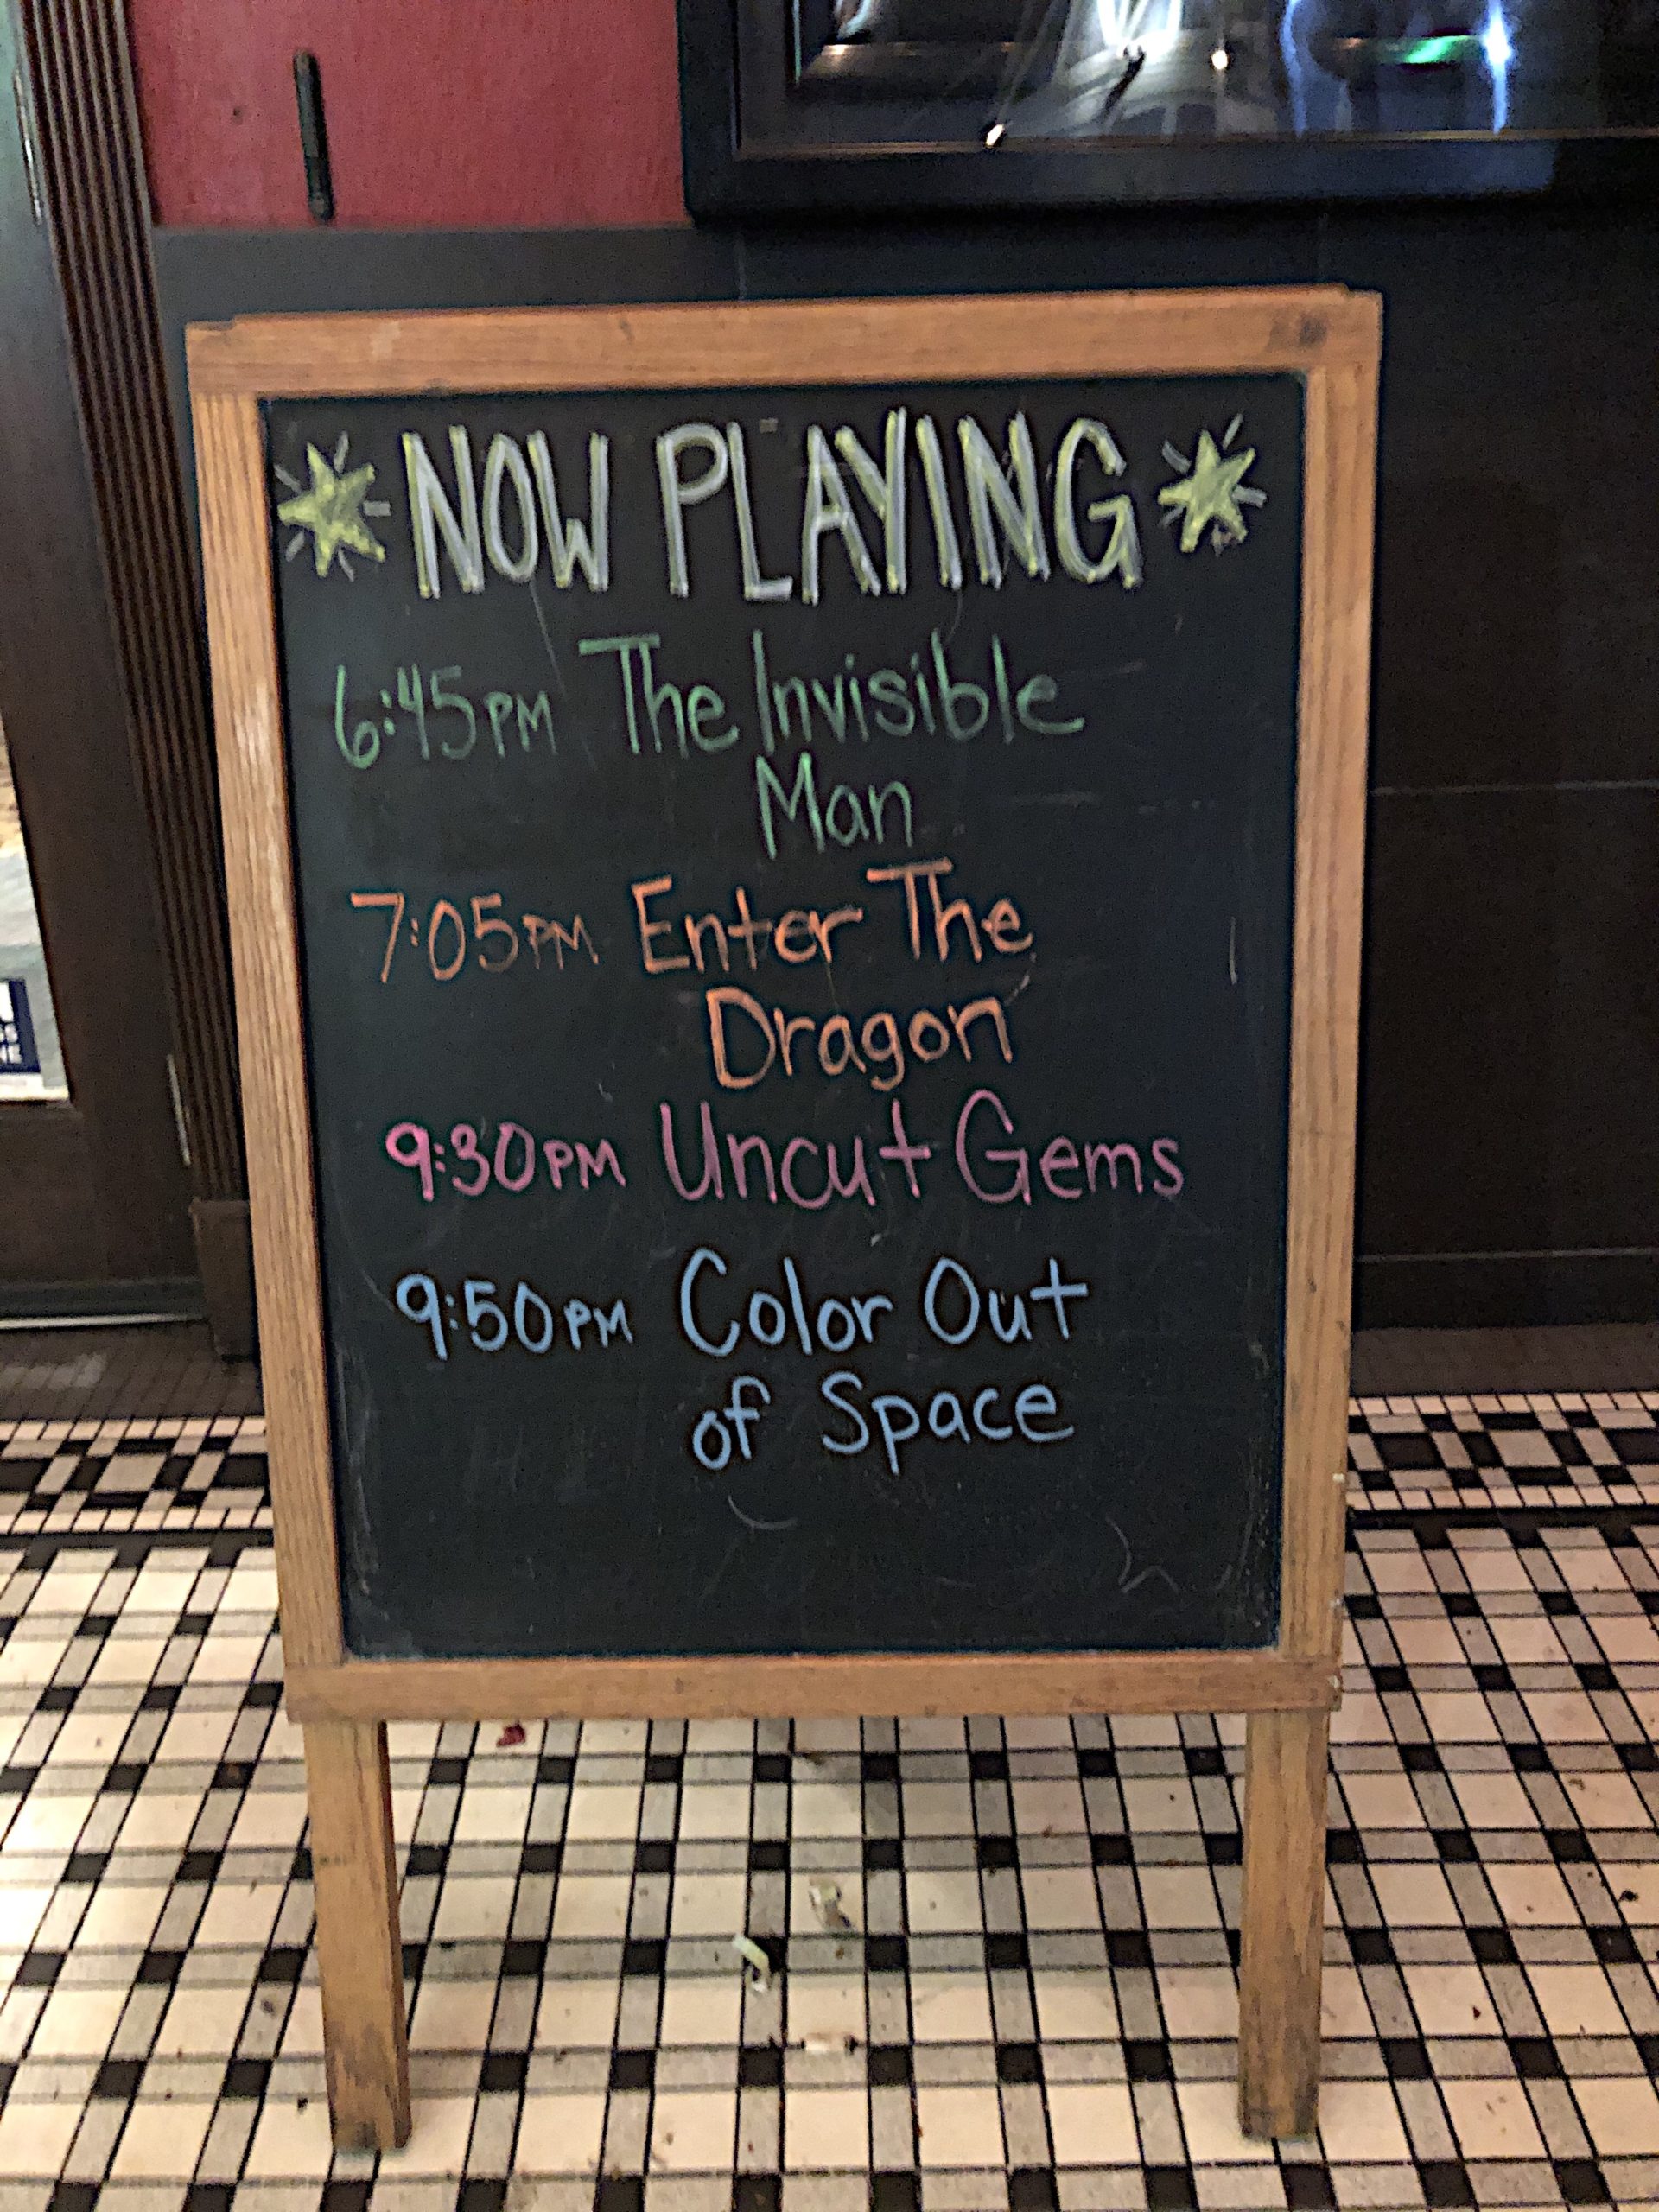 NOW PLAYING
6:45PM The Invisible
Man
7:05PM Enter The
Dragon
9:30PM Uncut Gems
9:50PM Color Out
of Space